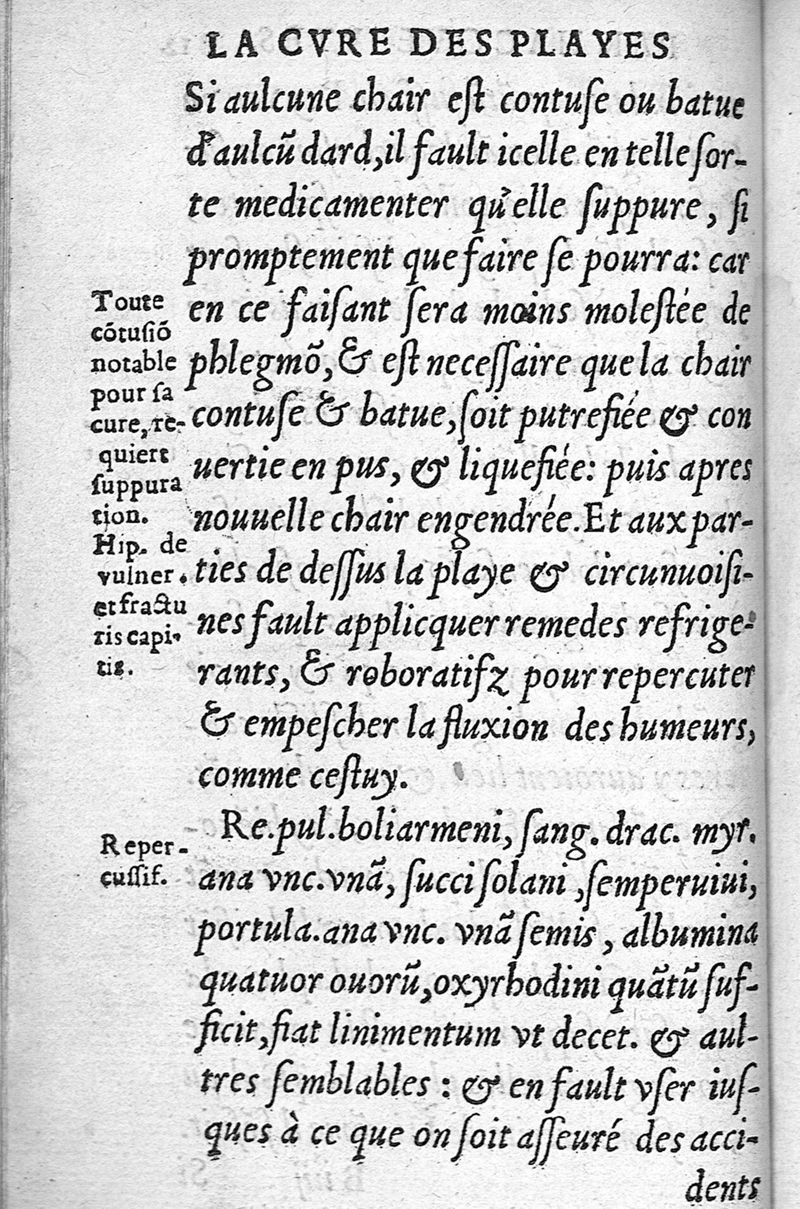 LA CVRE DES PLAYES
Si aulcune chair eſt contuſe ou batue
d'aulcũ dard, il fault icelle en telle ſor-
te medicamenter qu'elle ſuppure, ſi
promptement que faire ſe pourra: car
en ce faiſant ſera moins moleſtée de
phlegmõ, & eſt neceſſaire que la chair
contuſe & batue, ſoit putrefiée & con
uertie en pus, & liquefiée: puis apres
nouuelle chair engendrée. Et aux par-
ties de deſſus la playe & circunuoiſi-
nes fault applicquer remedes refrige-
rants, & roboratifz pour repercuter
& empeſcher la fluxion des humeurs,
comme ceſtuy.
Toute
cõtuſiõ
notable
pour ſa
cure, re-
quiert
ſuppura
tion.
Hip. de
vulner.
et fractu
ris capi-
tis.
Re. pul. boliarmeni, ſang. drac. myr.
ana vnc. vnã, ſucci ſolani, ſemperuiui,
portula. ana vnc. vnã ſemis, albumina
quatuor ouorũ, oxyrhodini quãtũ ſuf-
ficit, fiat linimentum vt decet. & aul-
tres ſemblables: & en fault vſer iuſ-
ques à ce que on ſoit aſſeuré des acci-
dents
Reper-
cuſſif.